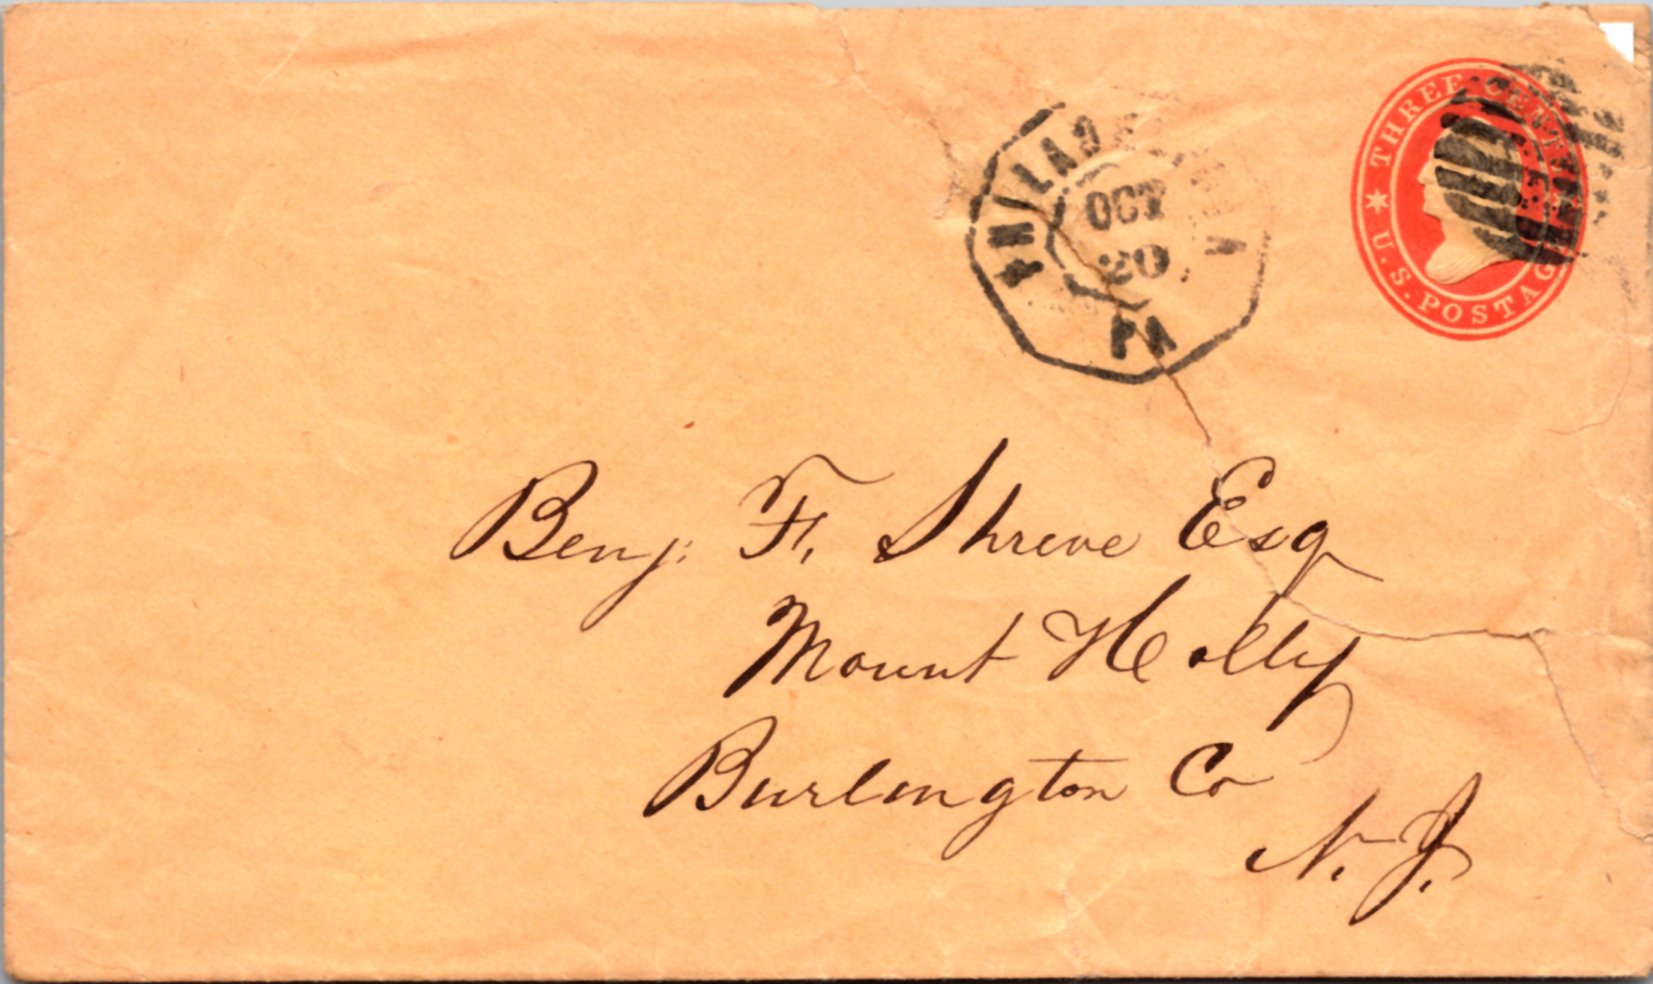 THREE CENTS
U.S. POSTAGE
PHILADELPHIA
OCT
20
PA
Benj. F. Shreve Esq
Mount Holly
Burlington Co
N. J.